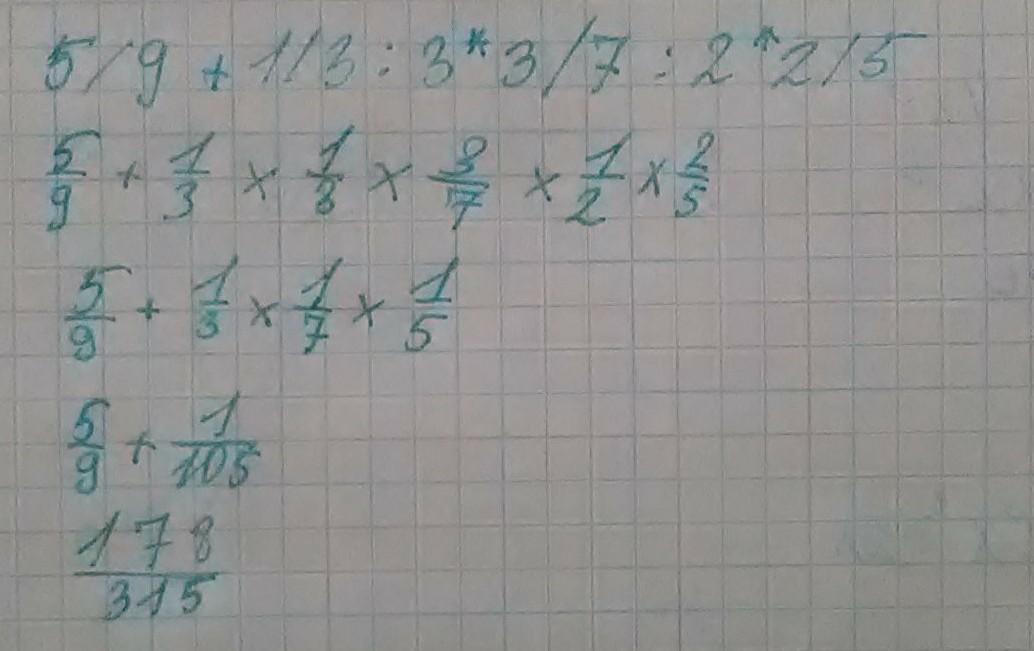 5/9 + 1/3 : 3*3/7 : 2*2/5
5/9 + 1/3 × 1/3 × 3/7 × 1/2 × 2/5
5/9 + 1/3 × 1/7 × 1/5
5/9 + 1/105
178/315